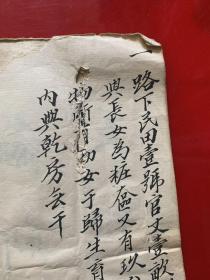 一路下民田壹號官文壹畝
與長女為粧奩又有玖
物嘶 幼女于歸生育
內與乾房云干